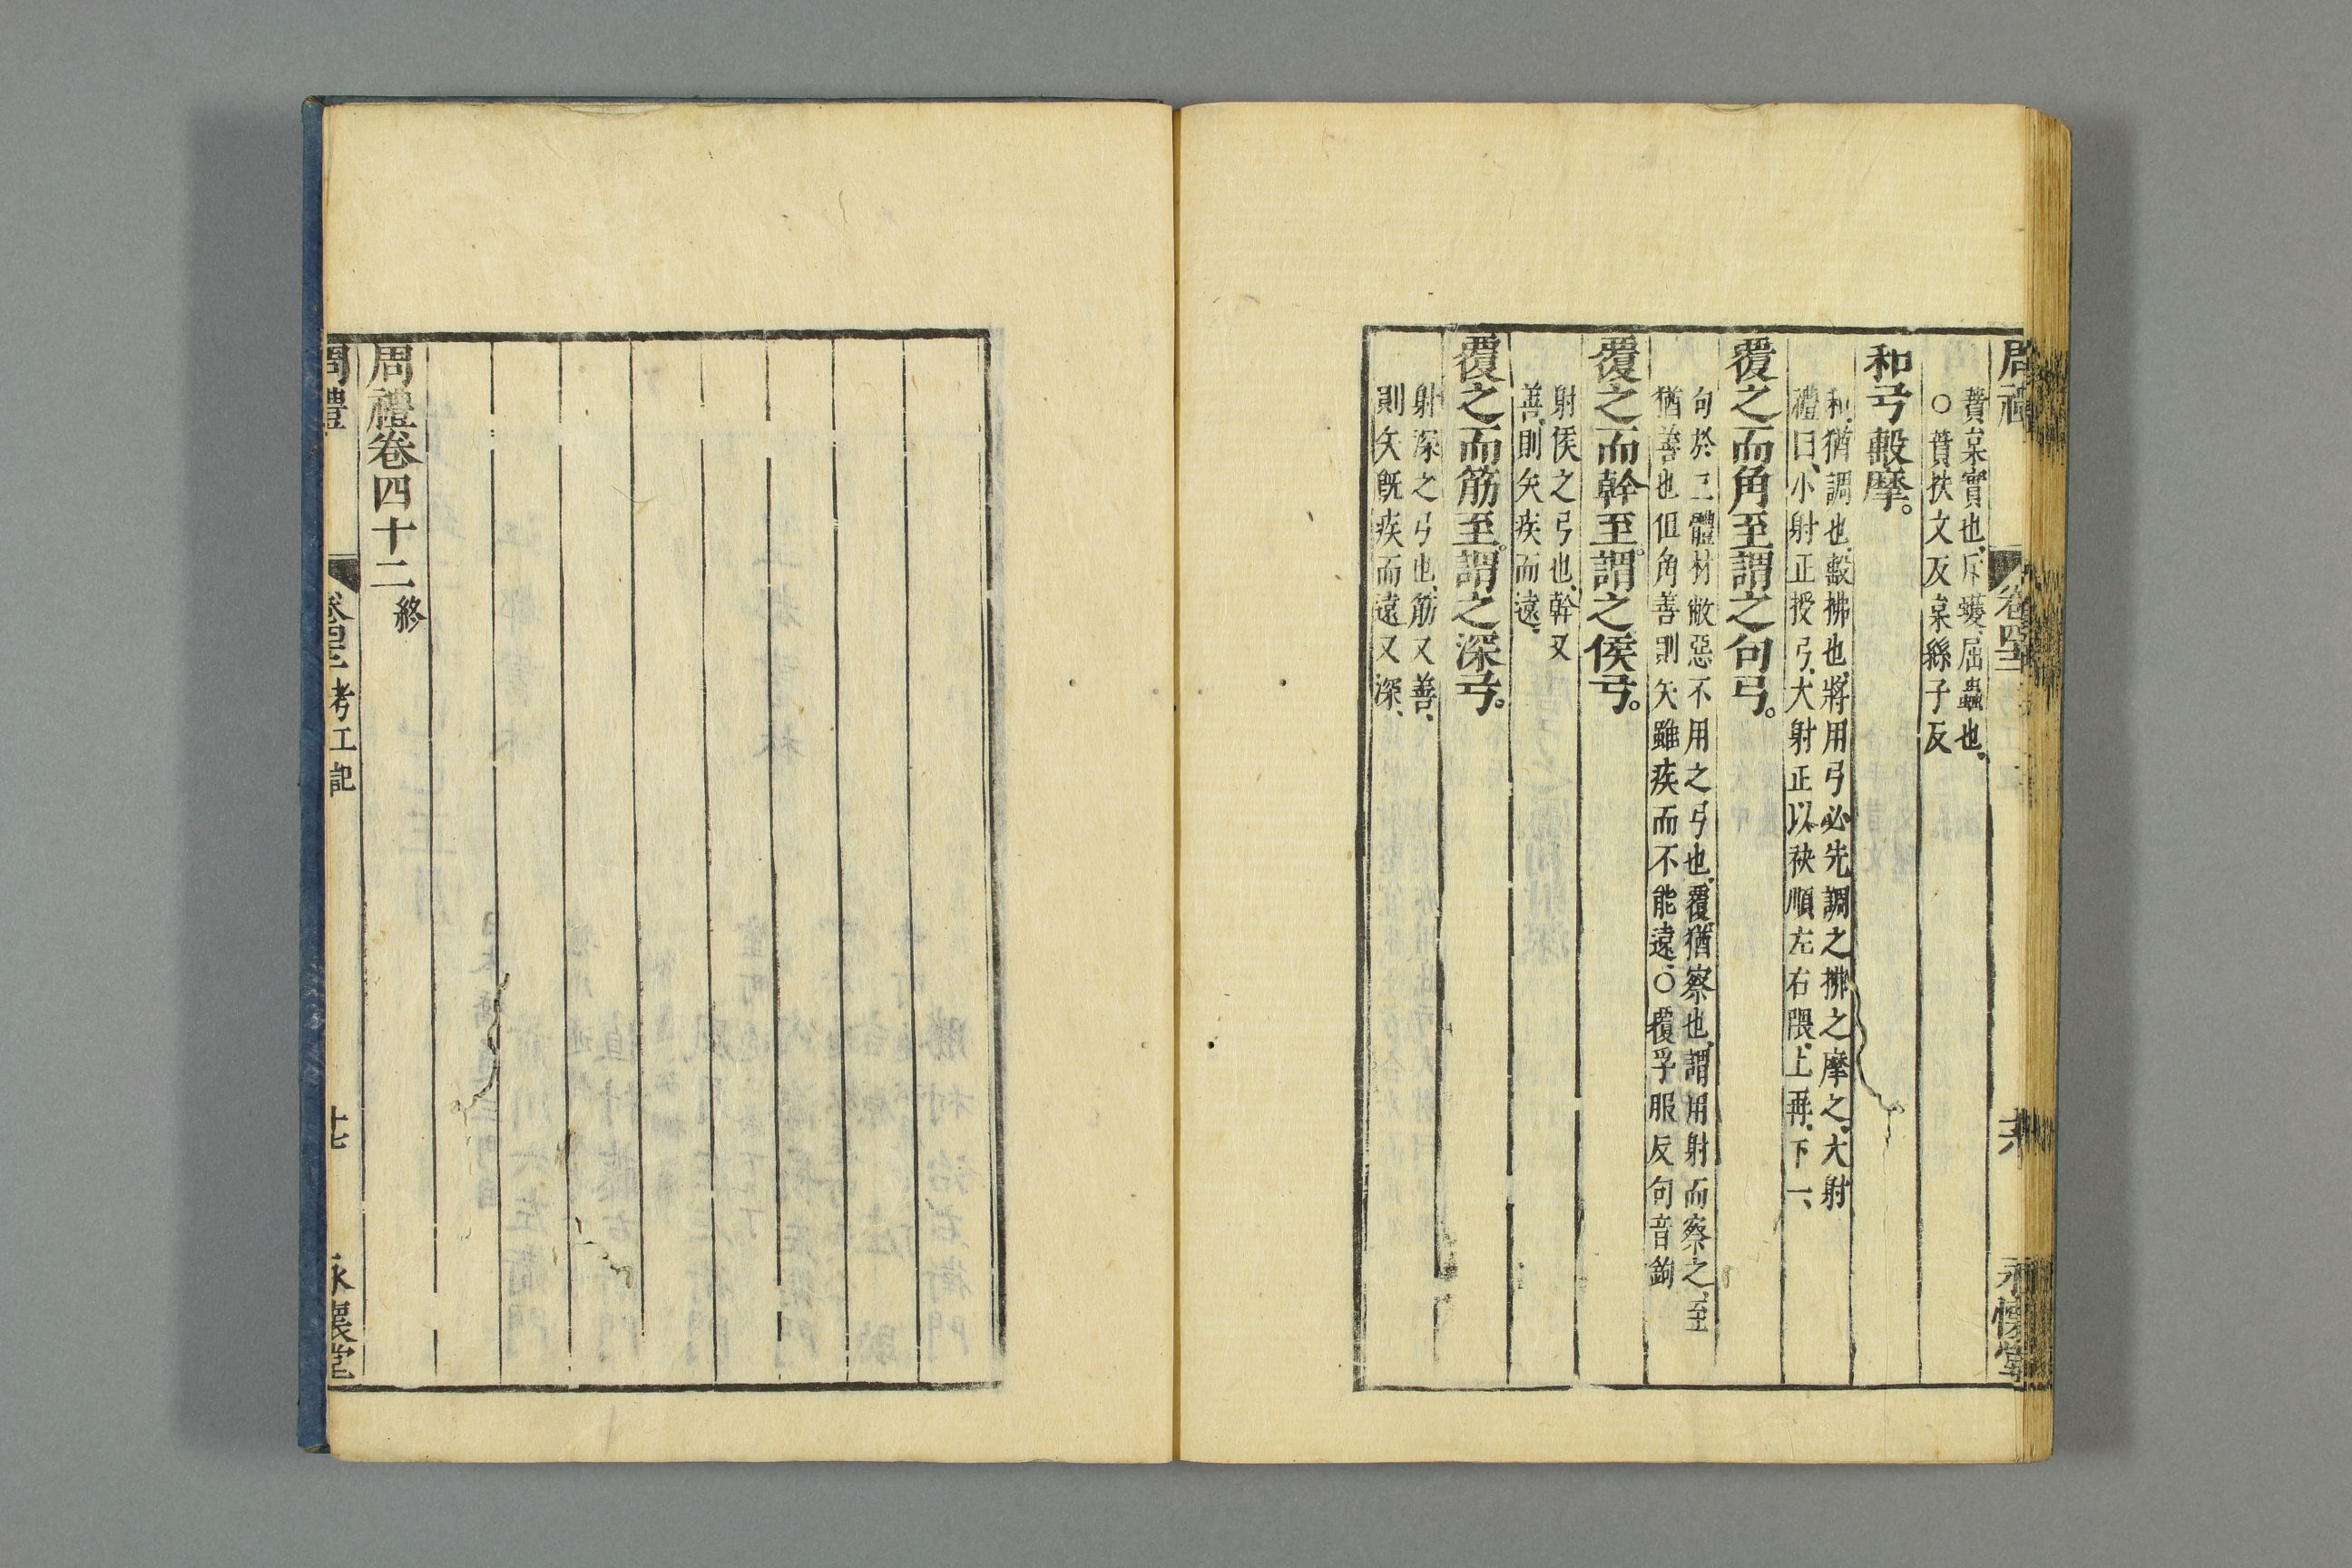 周禮
卷四十二
十六
永懷堂
蕡枲實也、斥蠖、屈蟲也、
○蕡扶文反枲絲子反
和弓毄摩。
和、猶調也、毄、拂也、將用弓必先調之拂之摩之、大射
禮曰、小射正授弓、大射正以袂順左右隈、上再、下一、
覆之而角至謂之句弓。
句於三體材敝惡不用之弓也、覆、猶察也、謂用射而察之、至
猶善也但角善則矢雖疾而不能遠、○覆孚服反句音鉤
覆之而幹至。謂之侯弓。
射侯之弓也、幹又
善、則矢疾而遠、
覆之而筋至。謂之深弓。
射深之弓也、筋又善、
則矢既疾而遠又深、
周禮卷四十二終
周禮
卷四十二
考工記
十七
永懷堂